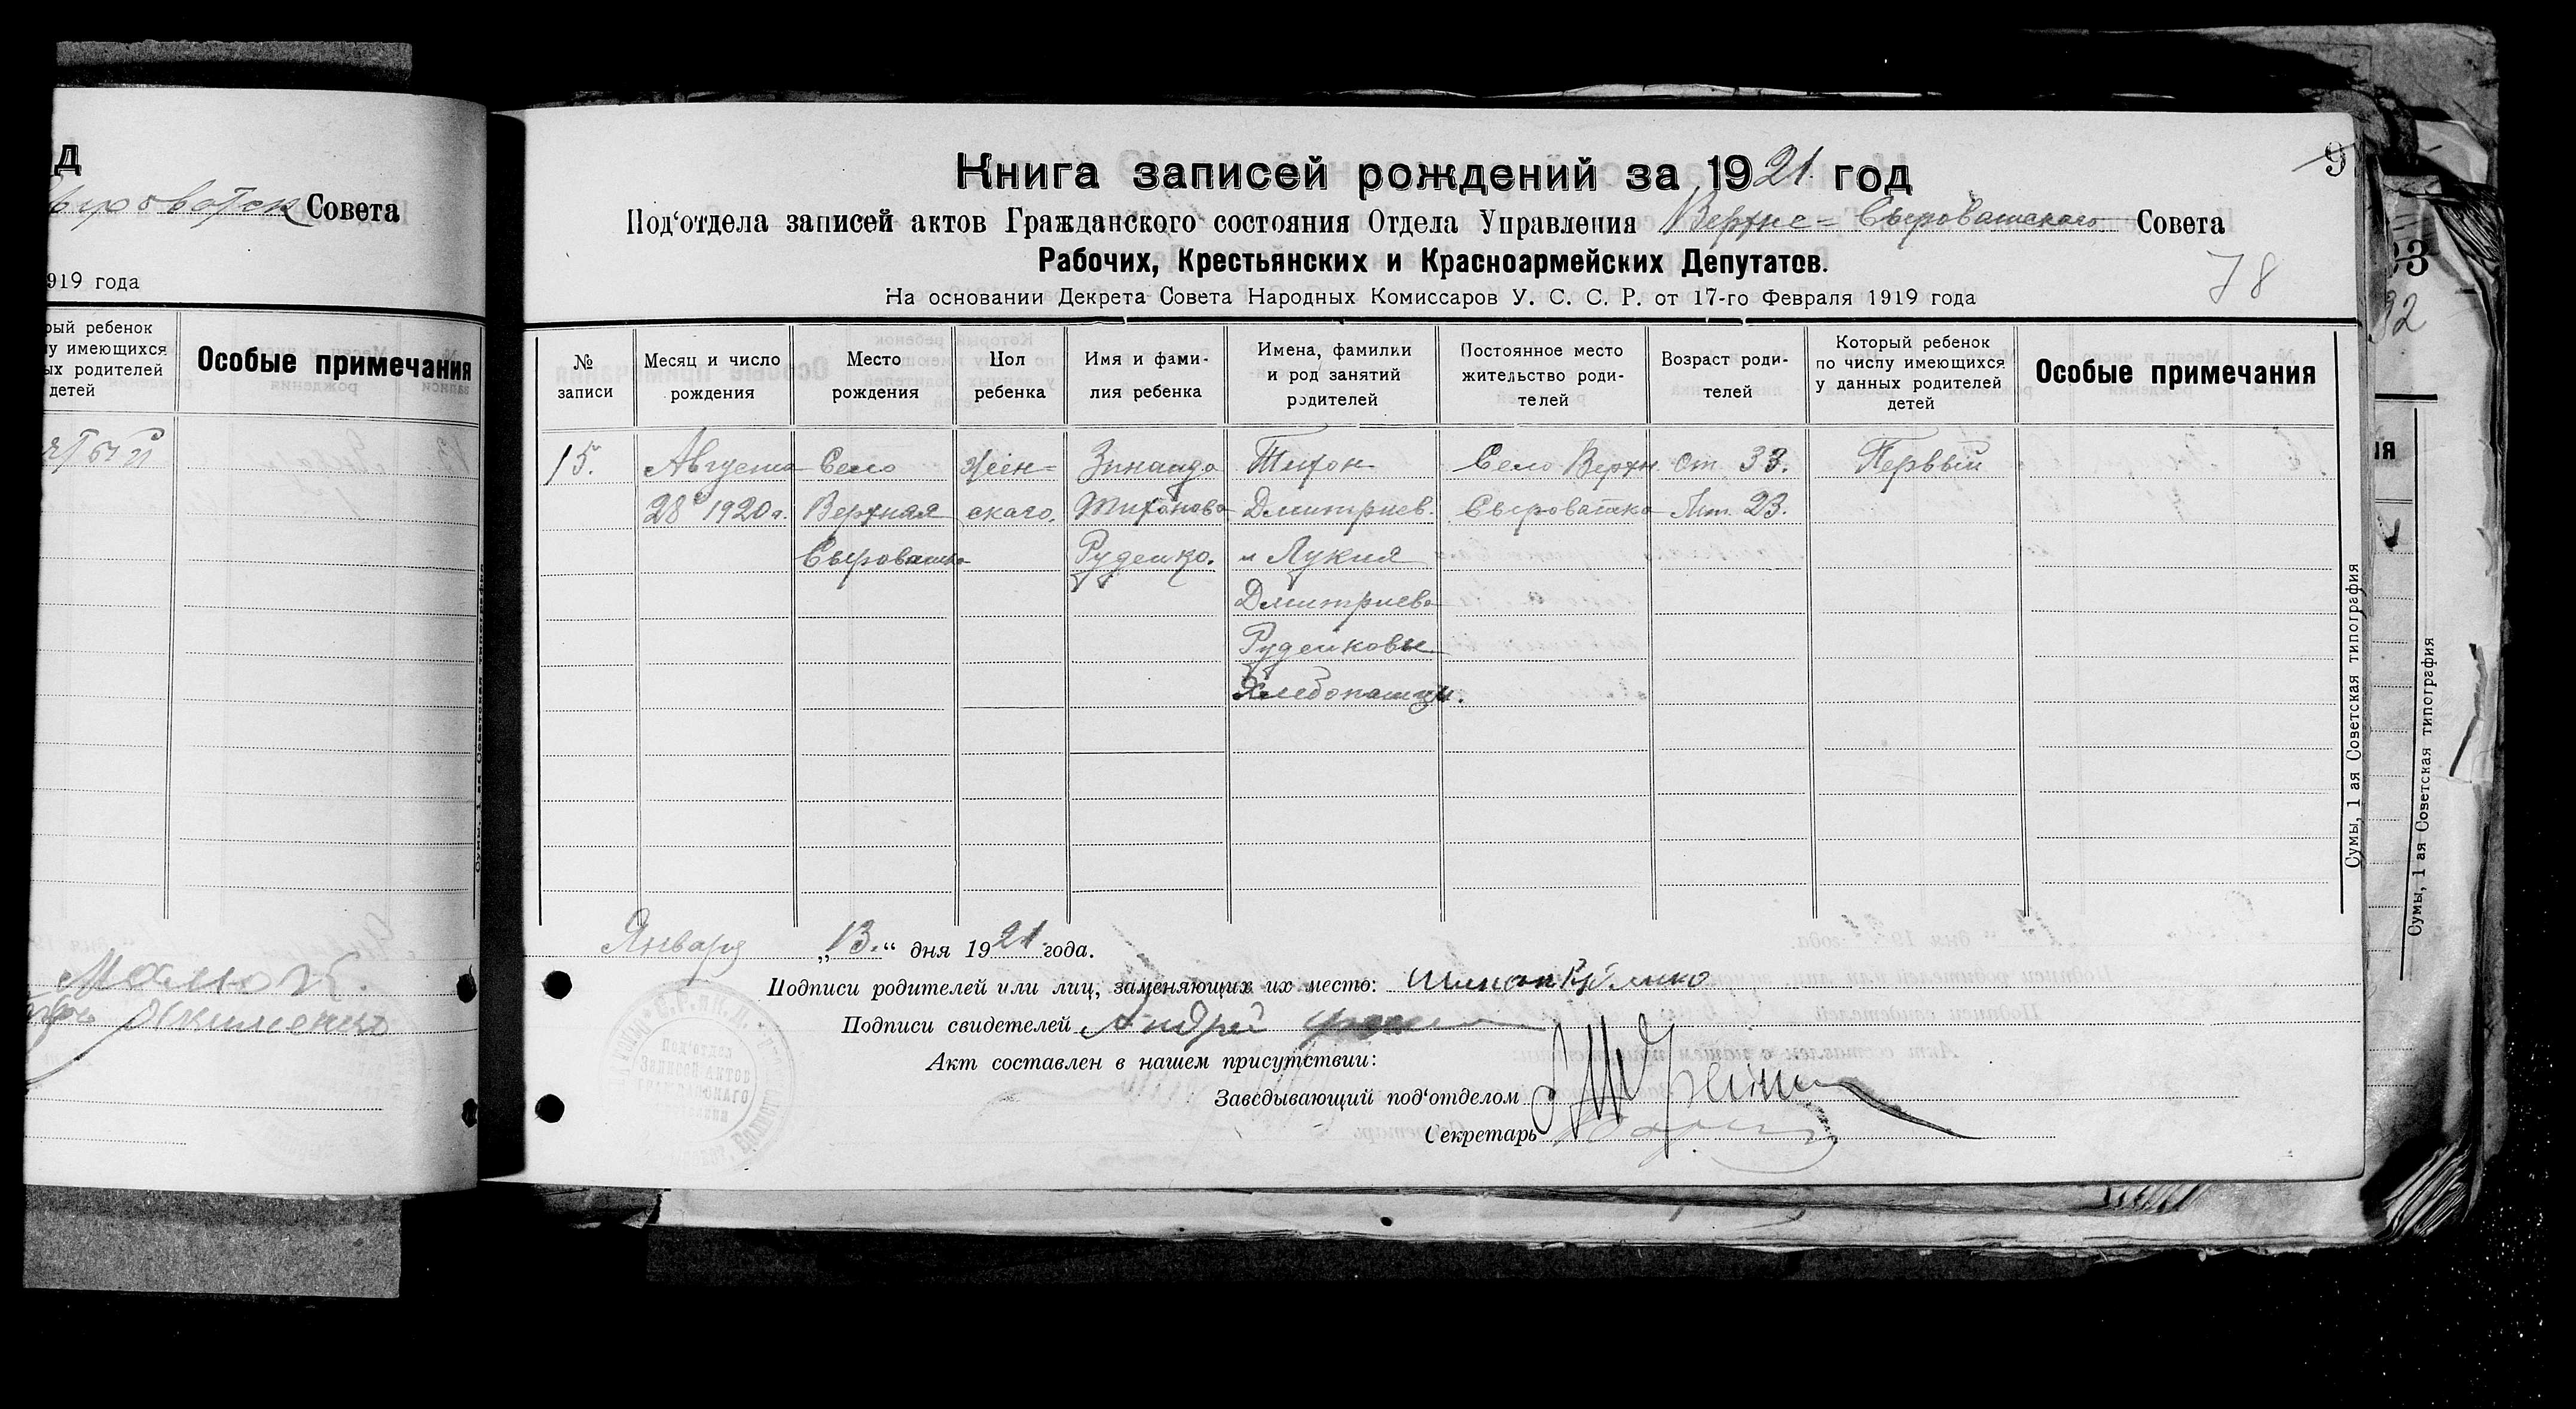 д
Совета
919 года
рый ребенок
у имеющихся
ых родителей
детей
Особые примечания
Книга записей рождений за 1921 год
Под‘отдела записей актов Гражданского состояния Отдела Управления Верхне-Сыроватского Совета
Рабочих, Крестьянских и Красноармейских Депутатов.
На основании Декрета Совета Народных Комиссаров У. С. С. Р. от 17-го Февраля 1919 года
9
78
№ записи
Месяц и число рождения
Место рождения
Пол ребенка
Имя и фамилия ребенка
Имена, фамилки и род занятий родителей
Постоянное место жительство родителей
Возраст родителей
Который ребенок по числу имеющихся у данных родителей детей
Особые примечания
15. Августа Село жен- Зинаида Тихон Село Верхн. от. 33. Первый
28го 1920 г. Верхняя скаго. Тихонова Дмитриев. Сыроватка Мат. 23.
Сыроватка Руденко. и Лукия
Дмитриева
Руденковы
Хлебопашцы.
Января „13.“ дня 1921 года.
Подписи родителей или лиц, заменяющих их место:
Подписи свидетелей Андрей
Акт составлен в нашем присутствии:
Заведывающий под‘отделом
Секретарь
Под‘отдел
Записей Актов
Гражданского
Сумы, 1 ая Советская типография
Сумы, 1 ая Советская типография
32